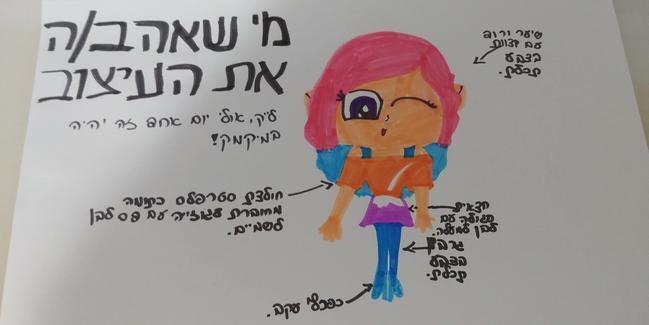 מי שאהב/ה
את העיצוב
לייק, אולי יום אחד זה יהיה
במיקמק!
שיער ורוד
עם קצוות
בצבע
תכלת.
חולצת סטרפלס כתומה
מחוברת לגוזייה עם פס לבן
לשמיים.
חצאית
סגולה עם
לבן למעלה.
גרביון
בצבע
תכלת.
כפכפי עקב.